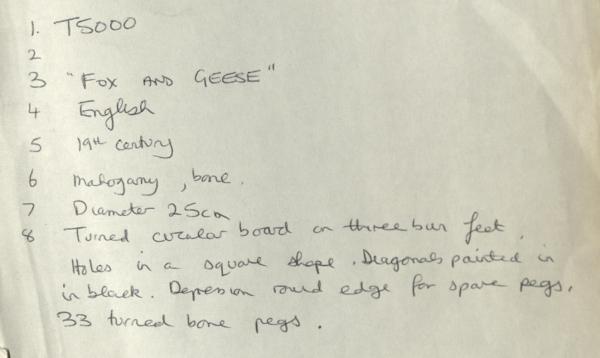 1. T5000
2
3 "FOX AND GEESE"
4 English
5 19th century
6 mahogany, bone.
7 Diameter 25cm
8 Turned circular board on three bun feet.
Holes in a square shape. Diagonals painted in
in black. Depression round edge for spare pegs.
33 turned bone pegs.